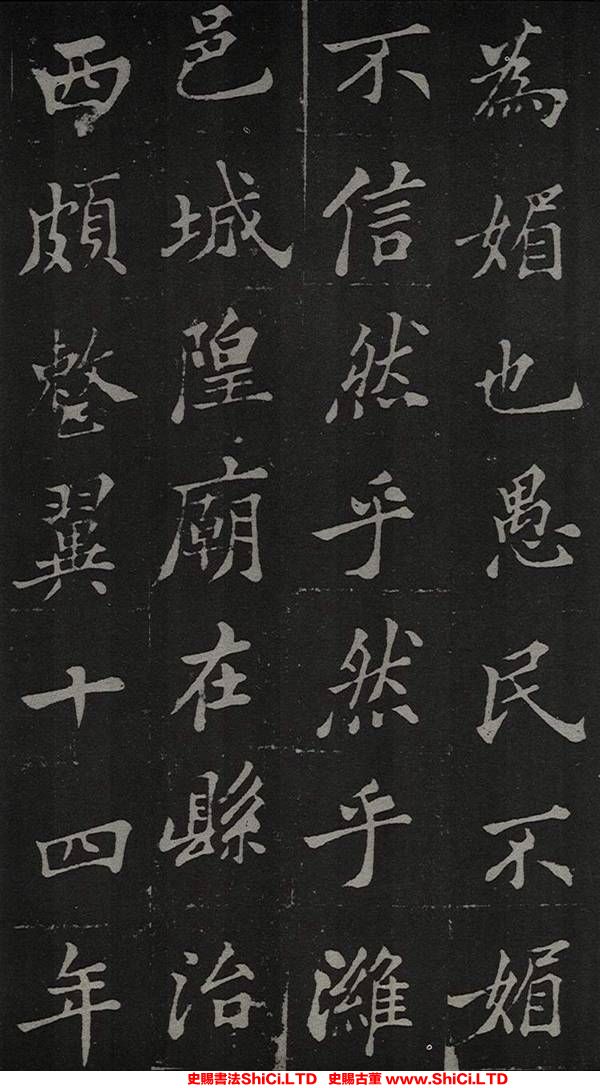 為媚也愚民不媚
不信然乎然乎濰
邑城隍廟在縣治
西頗整翼十四年
史賜書法ShiCi.LTD 史賜古董 www.ShiCi.LTD